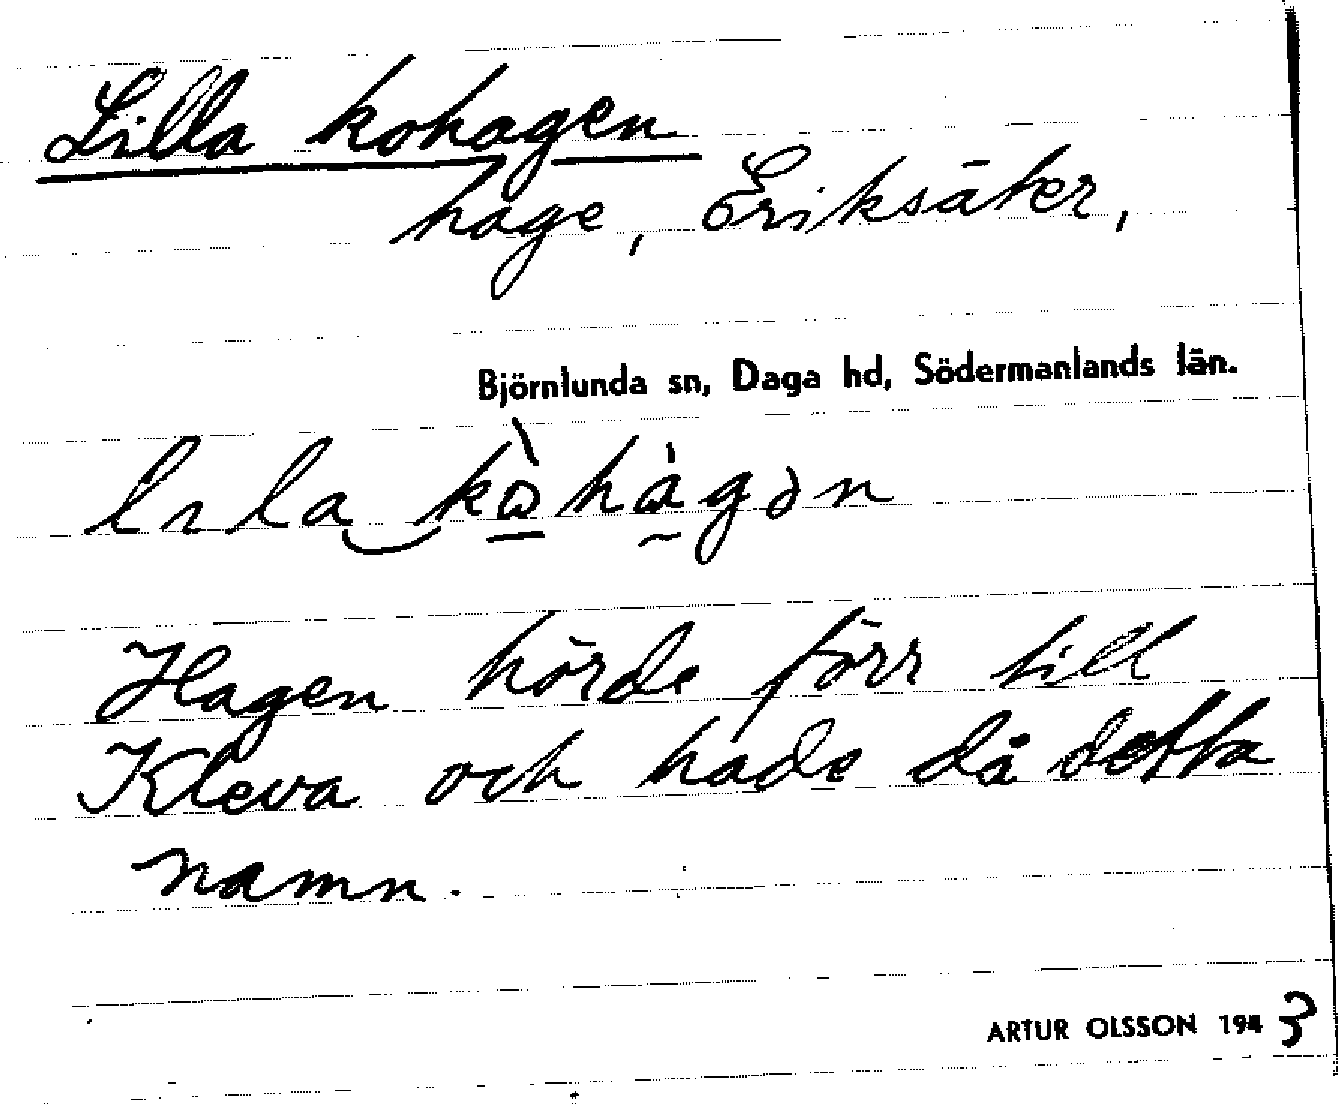 Lilla kohagen
hage, Eriksäter,
Björnlunda sn, Daga hd, Södermanlands län.
Hagen hörde förr till
Kleva och hade då detta
namn.
ARTUR OLSSON 1943